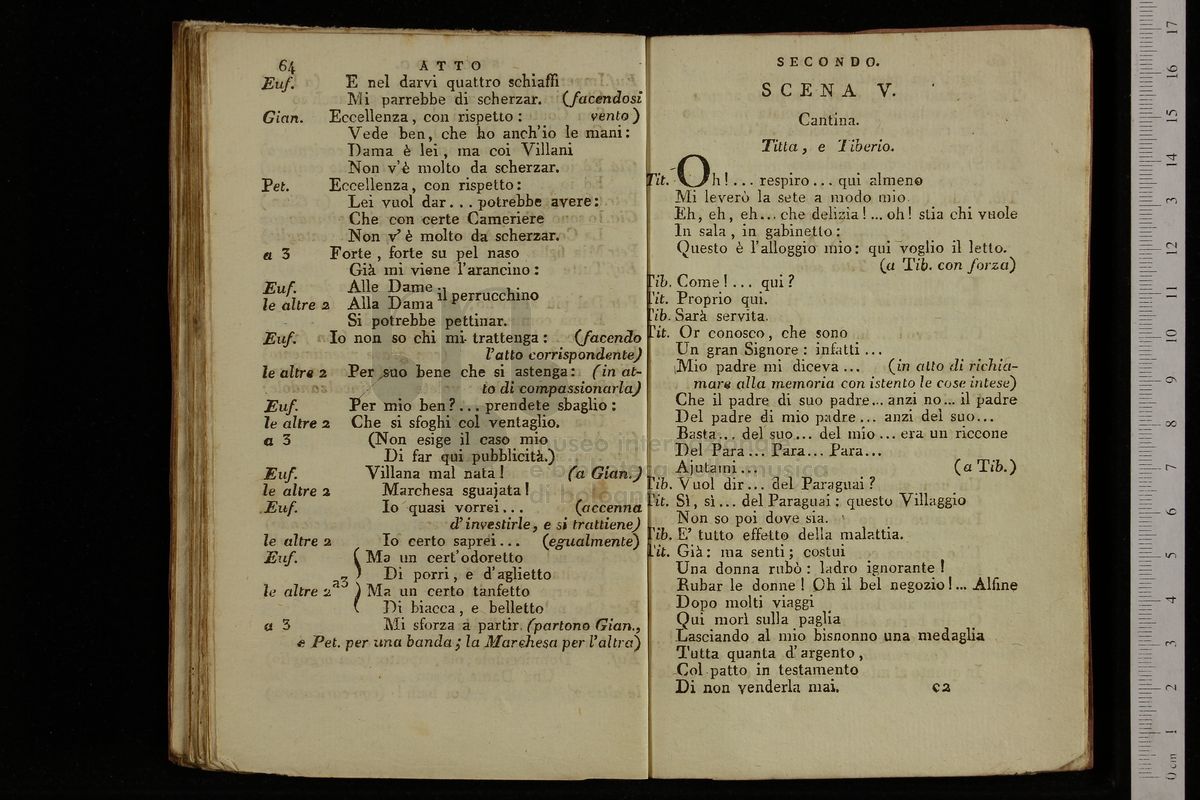 64 ATTO
Euf. E nel darvi quattro schiaffi
Mi parrebbe di scherzar. (facendosi
Gian. Eccellenza, con rispetto: vento)
Vede ben, che ho anch'io le mani:
Dama è lei, ma coi Villani
Non v'è molto da scherzar.
Pet. Eccellenza, con rispetto:
Lei vuol dar... potrebbe avere:
Che con certe Cameriere
Non v'è molto da scherzar.
a 3 Forte, forte su pel naso
Già mi viene l'arancino:
Euf. Alle Dame
il perrucchino
le altre 2 Alla Dama
Si potrebbe pettinar.
Euf. Io non so chi mi trattenga: (facendo
l'atto corrispondente)
le altre 2 Per suo bene che si astenga: (in at-
to di compassionarla)
Euf. Per mio ben?... prendete sbaglio:
le altre 2 Che si sfoghi col ventaglio.
a 3 (Non esige il caso mio
Di far qui pubblicità.)
Euf. Villana mal nata! (a Gian.)
le altre 2 Marchesa sguajata!
Euf. Io quasi vorrei... (accenna
d'investirle, e si trattiene)
le altre 2 Io certo saprei... (egualmente)
Euf. Ma un cert'odoretto
Di porri, e d'aglietto
a 3
le altre 2 Ma un certo tanfetto
Di biacca, e belletto
a 3 Mi sforza a partir. (partono Gian.,
e Pet. per una banda; la Marchesa per l'altra)
SECONDO.
SCENA V.
Cantina.
Titta, e Tiberio.
Tit. Oh!... respiro... qui almeno
Mi leverò la sete a modo mio.
Eh, eh, eh... che delizia!... oh! stia chi vuole
In sala, in gabinetto:
Questo è l'alloggio mio: qui voglio il letto.
(a Tib. con forza)
Tib. Come!... qui?
Tit. Proprio qui.
Tib. Sarà servita.
Tit. Or conosco, che sono
Un gran Signore: infatti...
Mio padre mi diceva... (in atto di richia-
mare alla memoria con istento le cose intese)
Che il padre di suo padre... anzi no... il padre
Del padre di mio padre... anzi del suo...
Basta... del suo... del mio... era un riccone
Del Para... Para... Para...
Ajutami... (a Tib.)
Tib. Vuol dir... del Paraguai?
Tit. Sì, sì... del Paraguai: questo Villaggio
Non so poi dove sia.
Tib. E' tutto effetto della malattia.
Tit. Già: ma senti; costui
Una donna rubò: ladro ignorante!
Rubar le donne! Oh il bel negozio!... Alfine
Dopo molti viaggi
Qui morì sulla paglia
Lasciando al mio bisnonno una medaglia
Tutta quanta d'argento,
Col patto in testamento
Di non venderla mai.
c2
museo internazionale
e biblioteca della musica
di bologna
0 cm 1 2 3 4 5 6 7 8 9 10 11 12 13 14 15 16 17